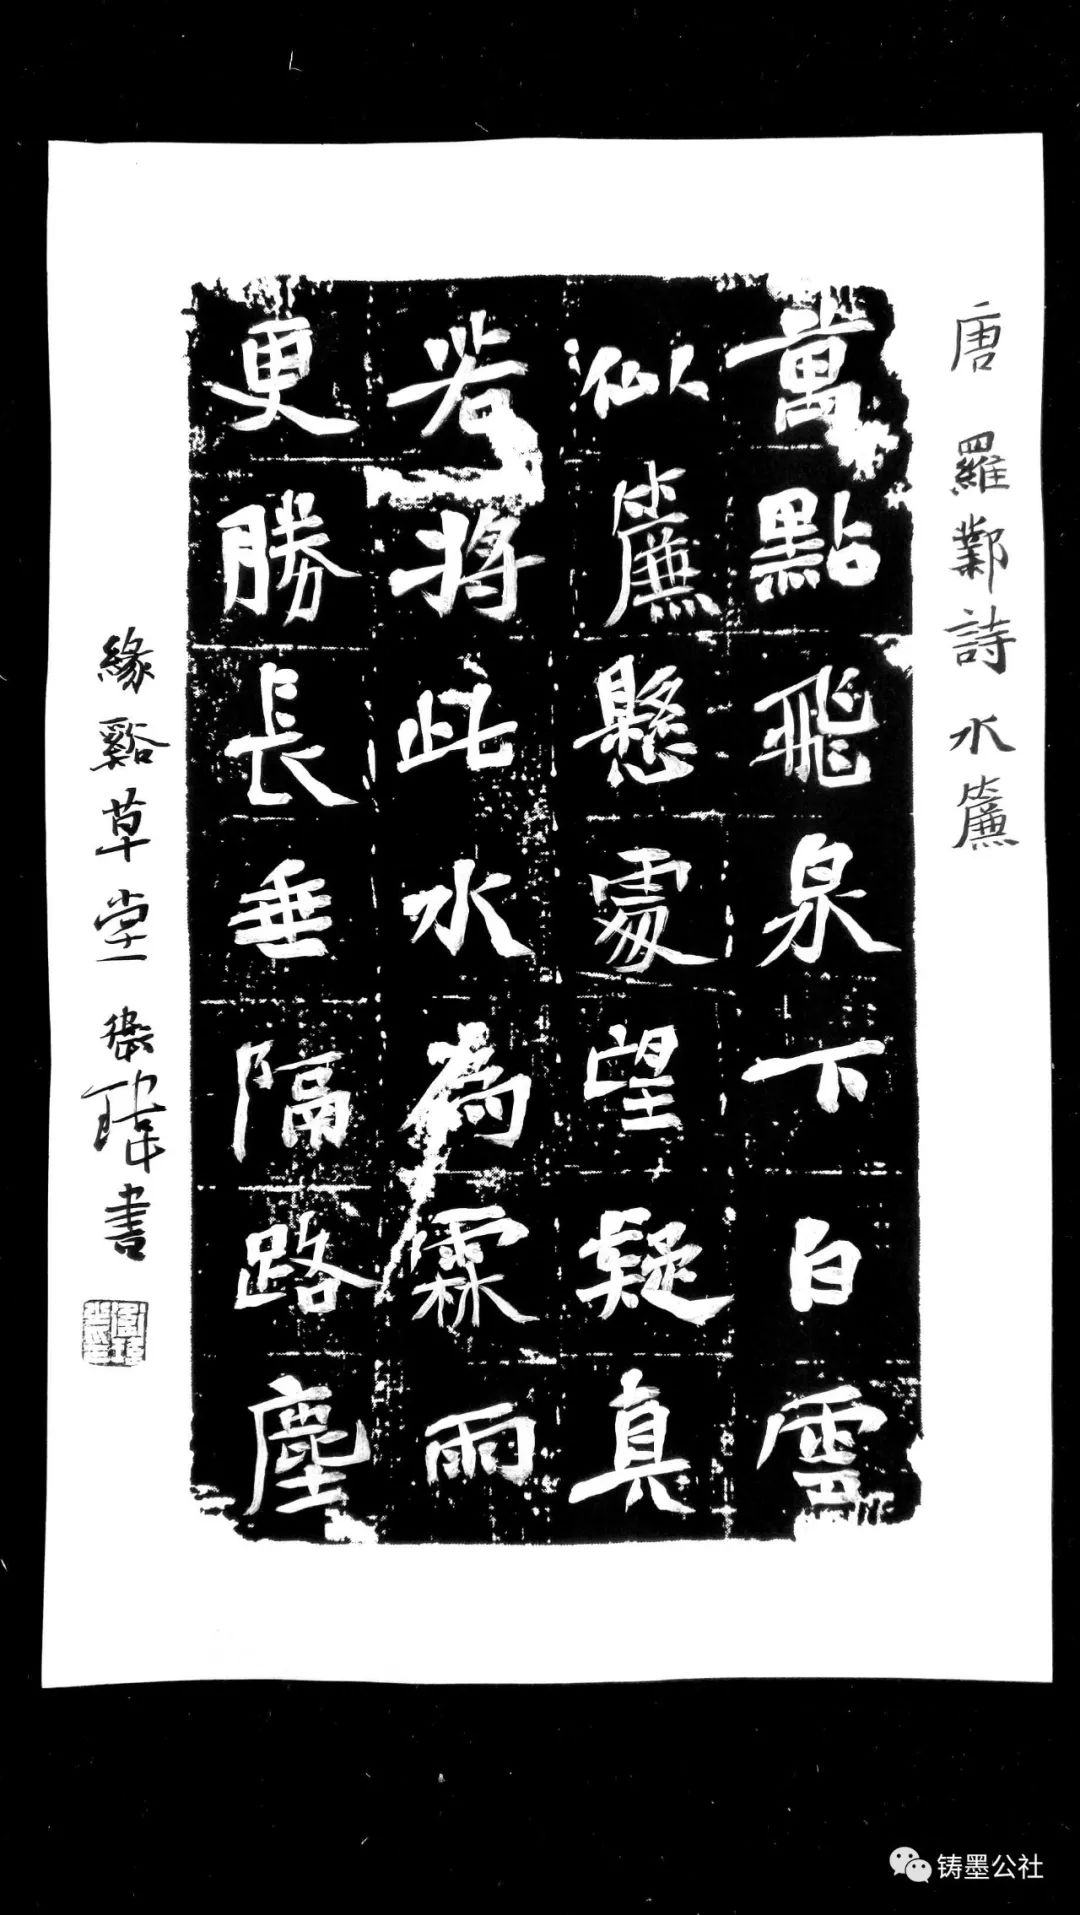 唐 羅鄴詩 水簾
萬點飛泉下白雲
似簾懸處望疑真
若將此水為霖雨
更勝長垂隔路塵
緣谿草堂 瑋書
铸墨公社